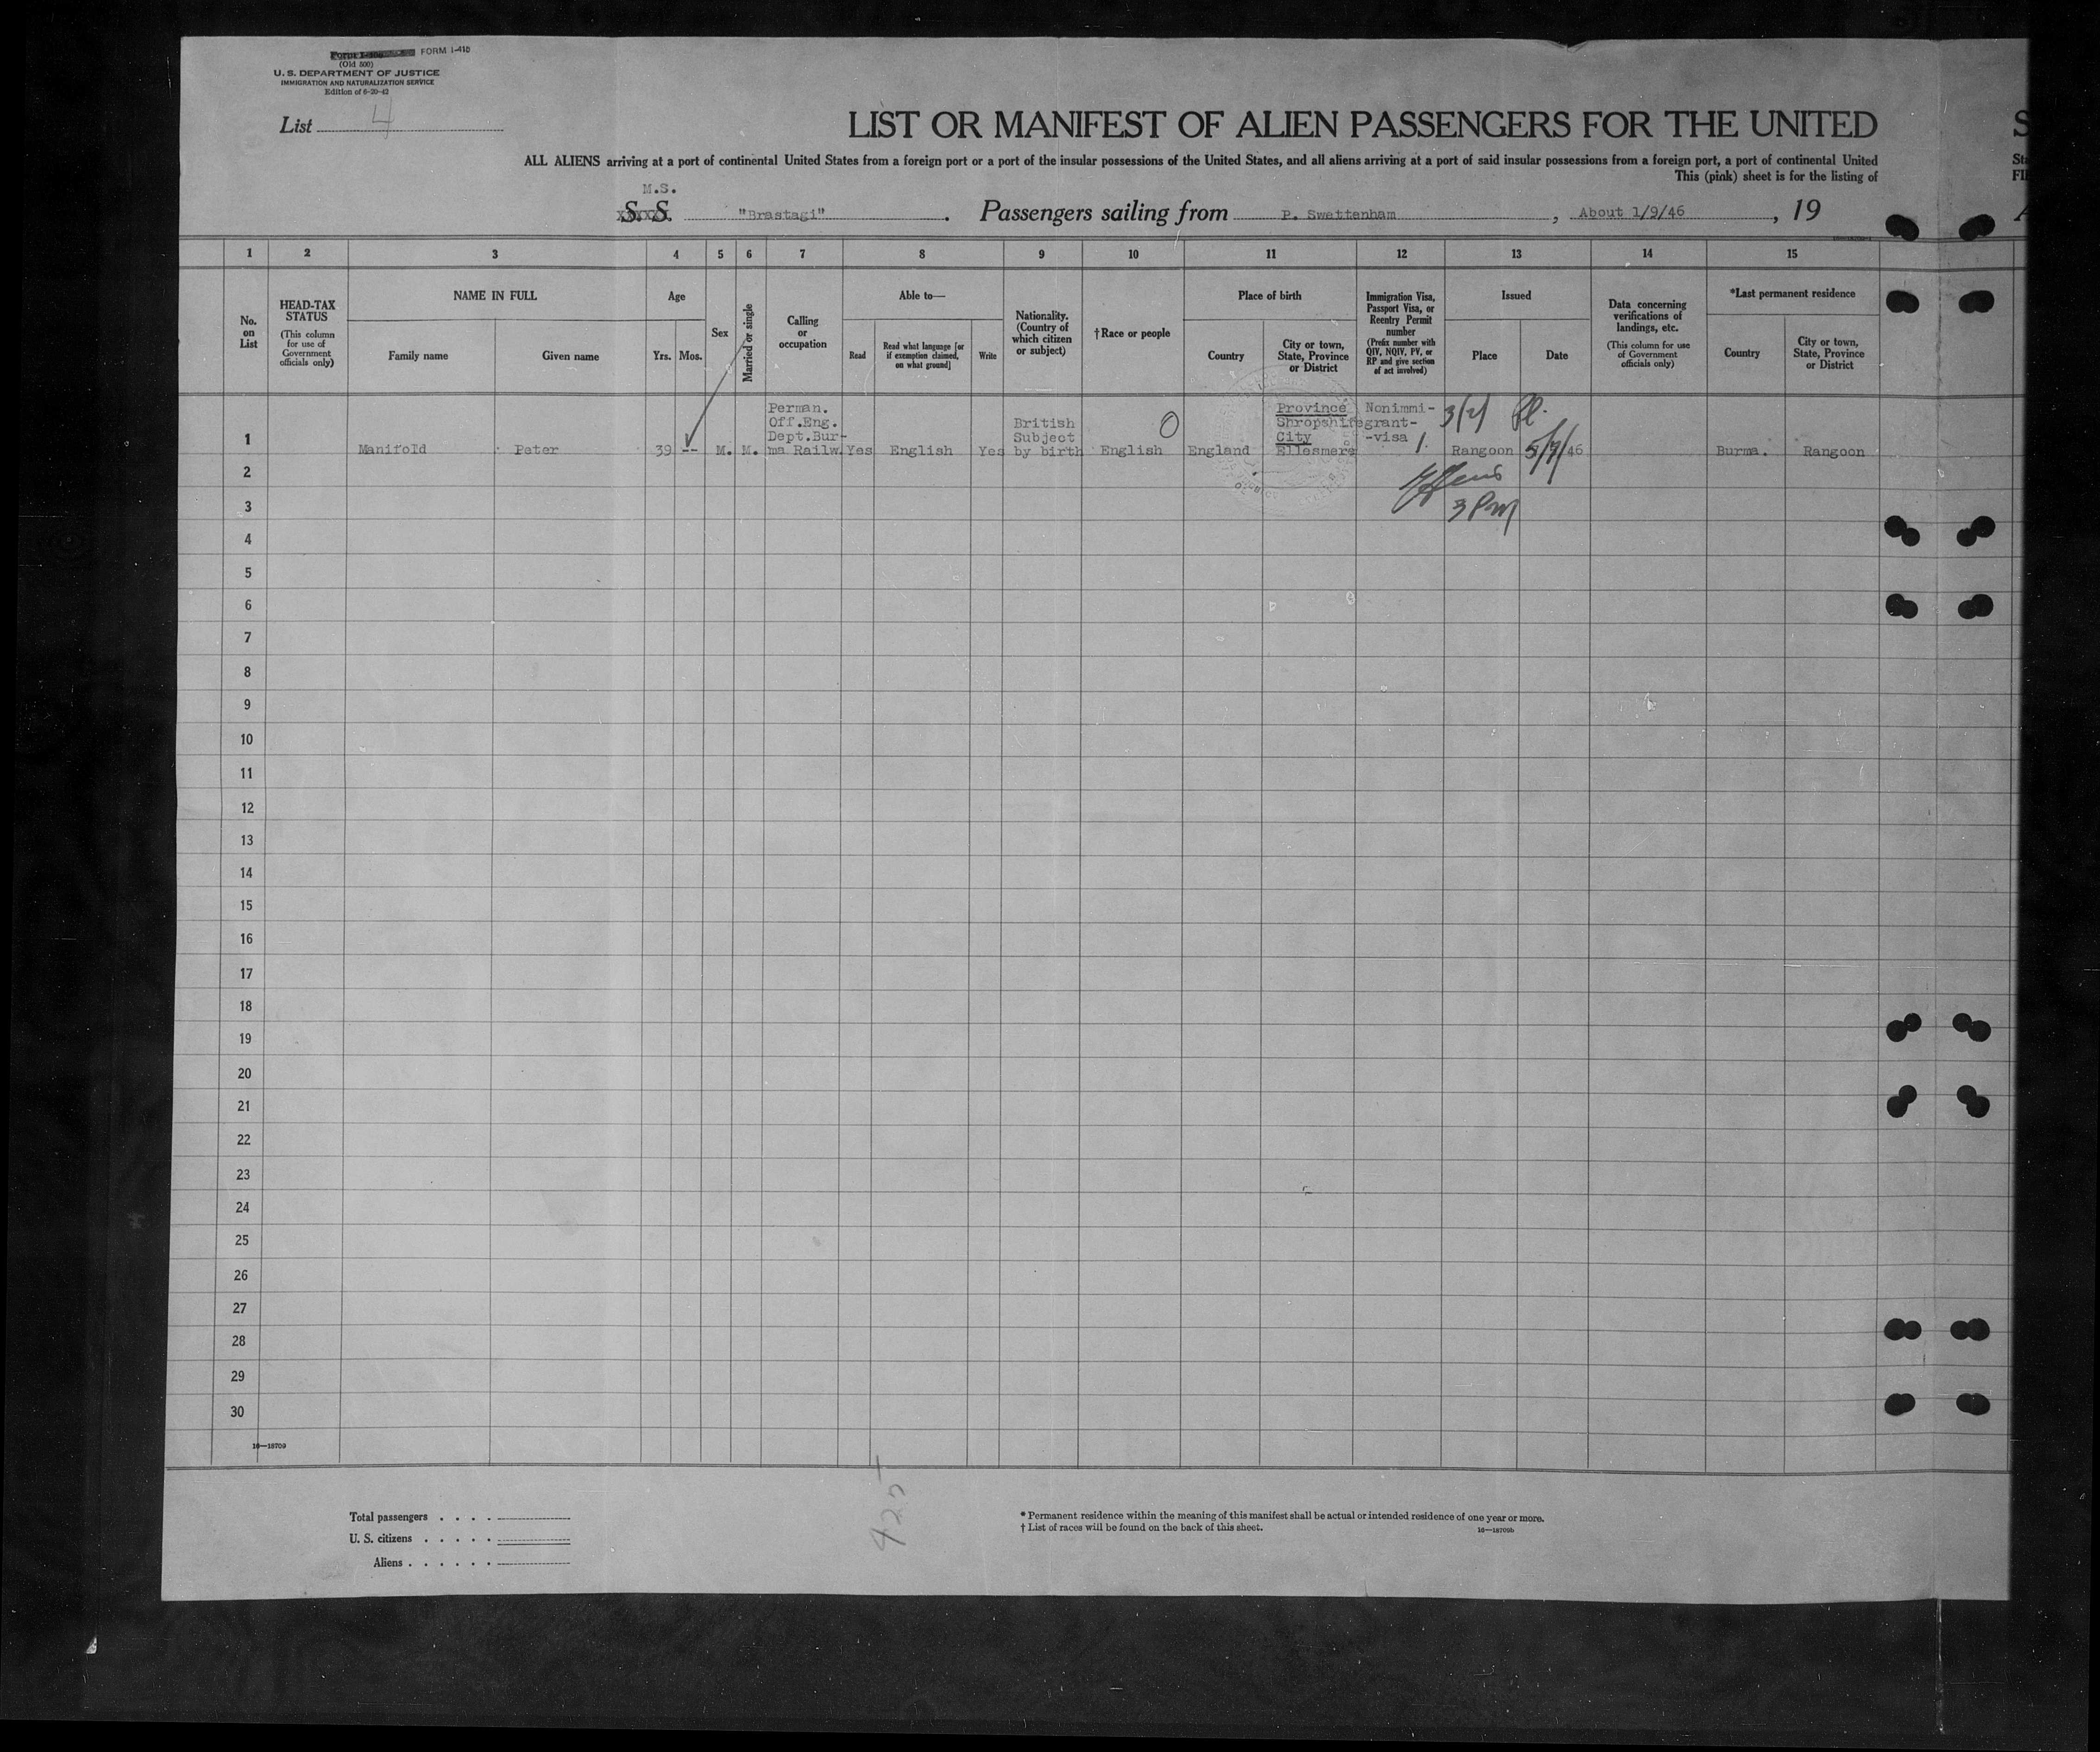 FORM I-415
(Old 500)
U. S. DEPARTMENT OF JUSTICE
IMMIGRATION AND NATURALIZATION SERVICE
Edition of 6-20-42
List 4
LIST OR MANIFEST OF ALIEN PASSENGERS FOR THE UNITED
S
ALL ALIENS arriving at a port of continental United States from a foreign port or a port of the insular possessions of the United States, and all aliens arriving at a port of said insular possessions from a foreign port, a port of continental United
Sta
This (pink) sheet is for the listing of
FI
M.S.
S. S. "Brastagi". Passengers sailing from P. Swettenham, About 1/9/46, 19
1 2 3 4 5 6 7 8 9 10 11 12 13 14 15
No. on List
HEAD-TAX STATUS
(This column for use of Government officials only)
NAME IN FULL
Family name
Given name
Age
Yrs. Mos.
Sex
Married or single
Calling or occupation
Able to—
Read
Read what language [or if exemption claimed, on what ground]
Write
Nationality. (Country of which citizen or subject)
†Race or people
Place of birth
Country
City or town, State, Province or District
Immigration Visa, Passport Visa, or Reentry Permit number
(Prefix number with QIV, NQIV, PV, or RP and give section of act involved)
Issued
Place
Date
Data concerning verifications of landings, etc.
(This column for use of Government officials only)
*Last permanent residence
Country
City or town, State, Province or District
1
Manifold
Peter
39
--
M.
M.
Perman.
Off.Eng.
Dept.Bur-
ma Railw.
Yes
English
Yes
British
Subject
by birth
English
0
England
Province
Shropshire
City
Ellesmere
Nonimmi-
grant-
-visa 1.
3/2/
Rangoon
5/7/46
Burma.
Rangoon
3 PM
2
3
4
5
6
7
8
9
10
11
12
13
14
15
16
17
18
19
20
21
22
23
24
25
26
27
28
29
30
16—18709
Total passengers . . . .
U. S. citizens . . . . .
Aliens . . . . . .
425
* Permanent residence within the meaning of this manifest shall be actual or intended residence of one year or more.
† List of races will be found on the back of this sheet.
16—18709b